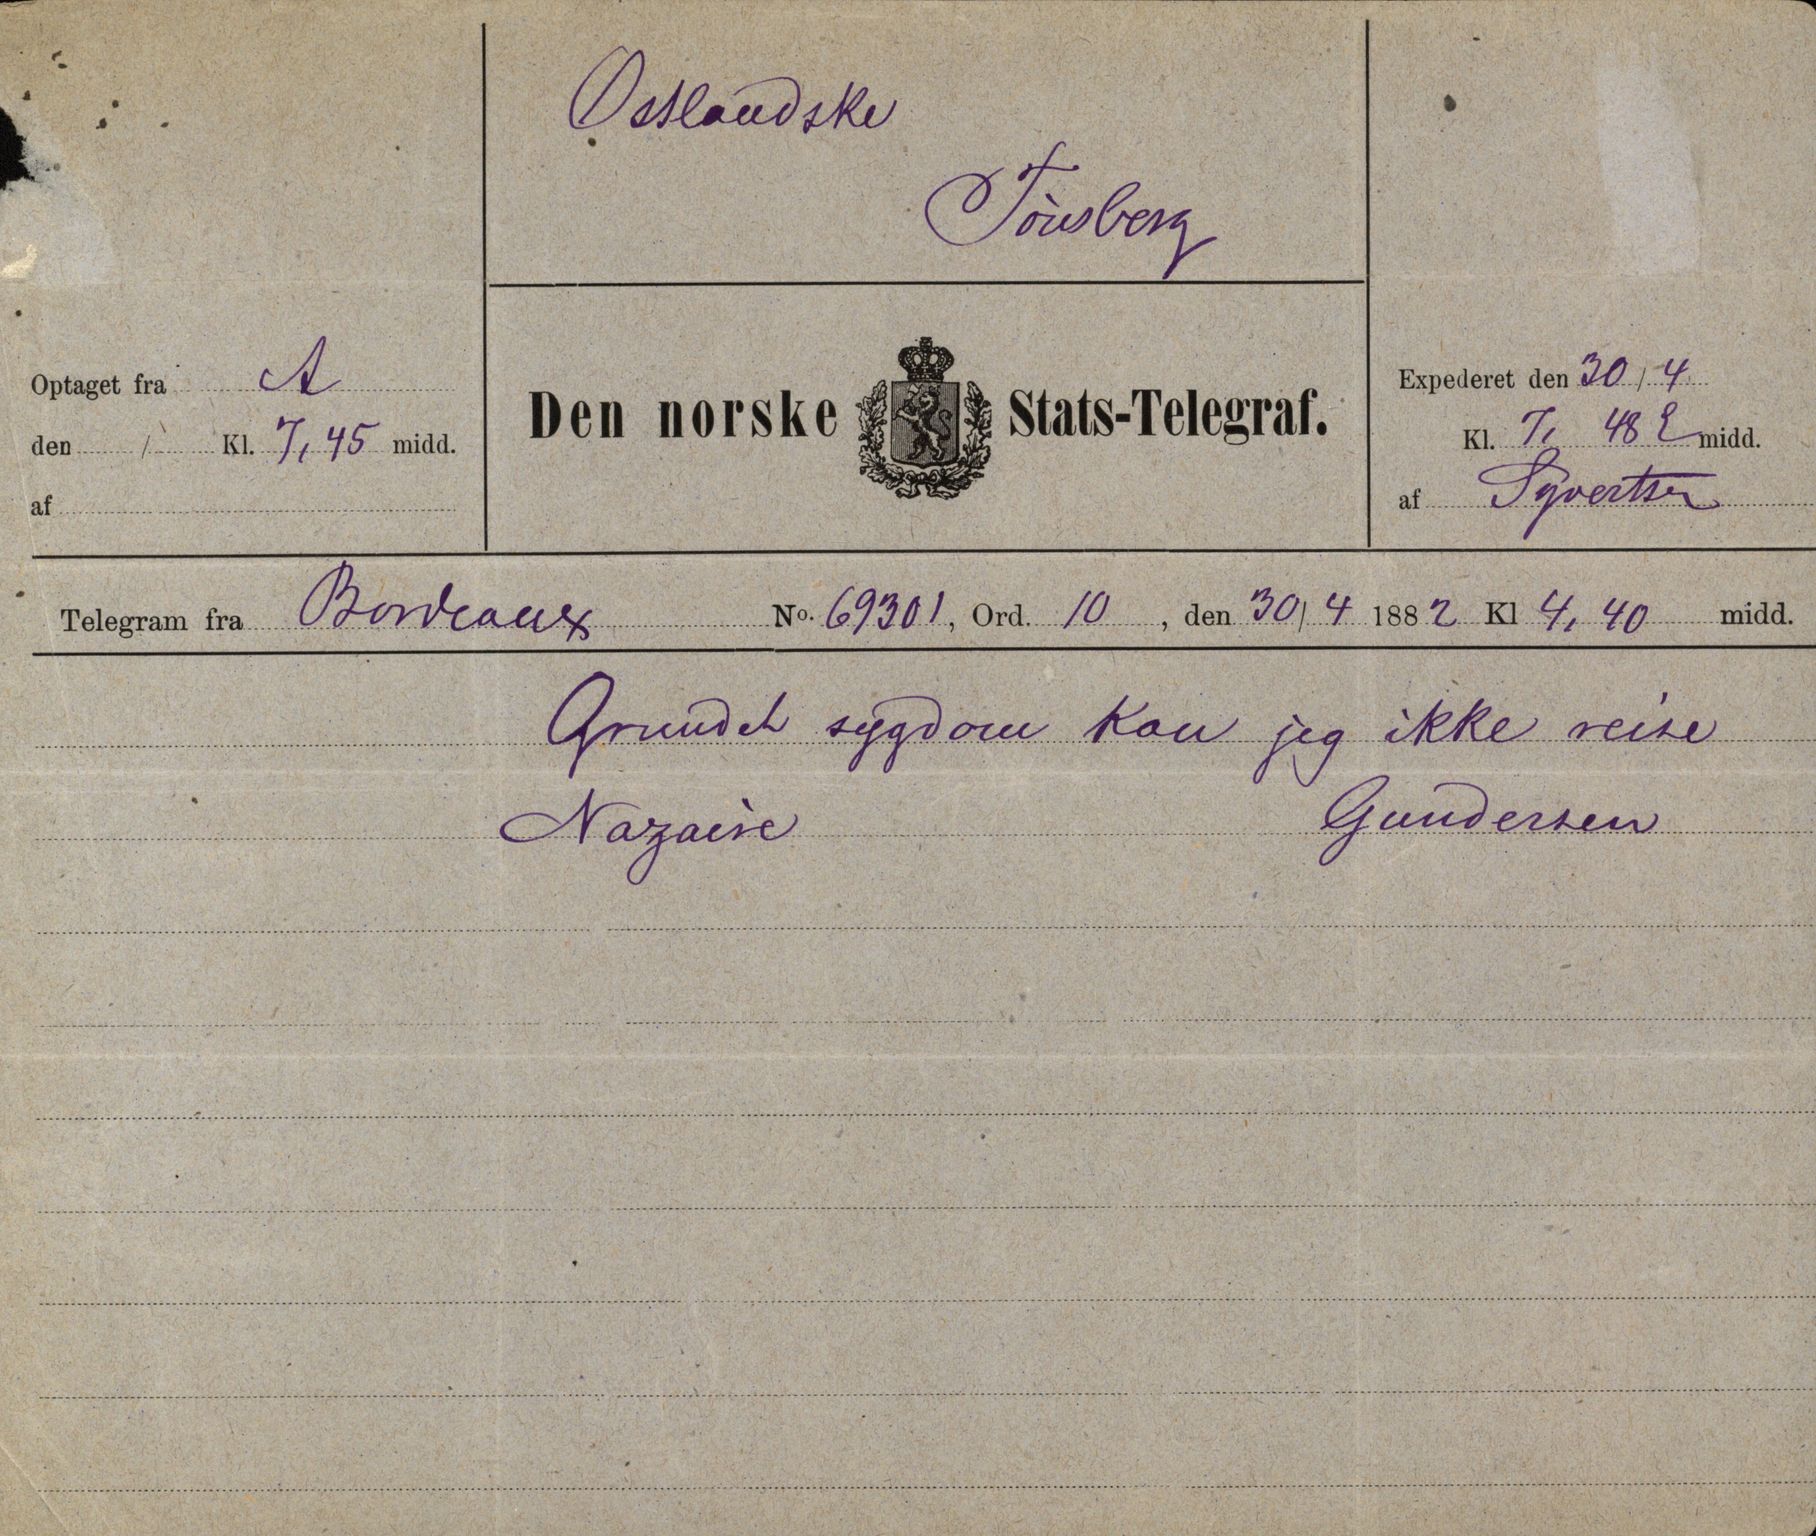 Ostlandske
Tònsberg
Optaget fra A
den / Kl. 7,45 midd.
af
Den norske Stats-Telegraf.
Expederet den 30/4
Kl. 7,48 E midd.
af Syvertsen
Telegram fra Bordeaux No. 69301, Ord. 10, den 30/4 1882 Kl 4,40 midd.
Grundet sygdom kan jeg ikke reise
Nazaire Gundersen